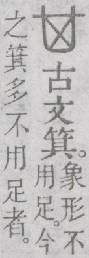 𠀠古文箕。
象形不
用足。今
之箕多不用足者。